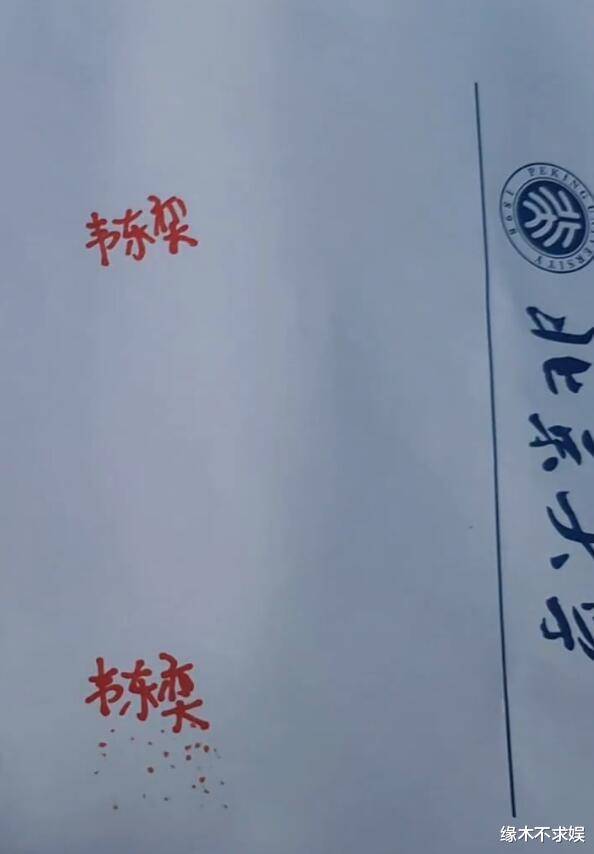 1898 PEKING UNIVERSITY
韦东奕
北京大学
韦东奕
缘木不求娱